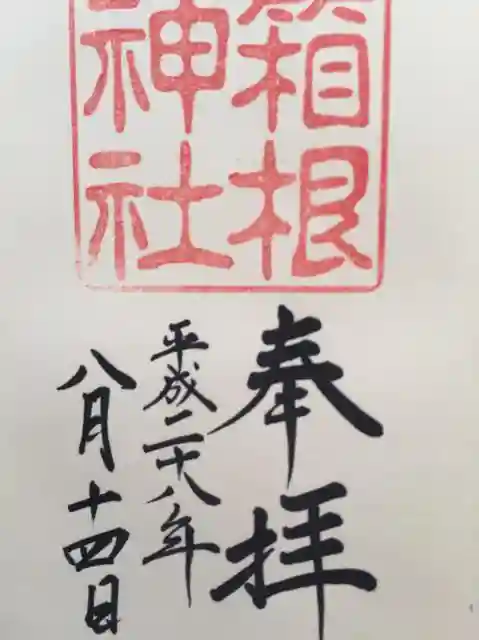 箱根
神社
奉拝
平成二十八年
八月十四日